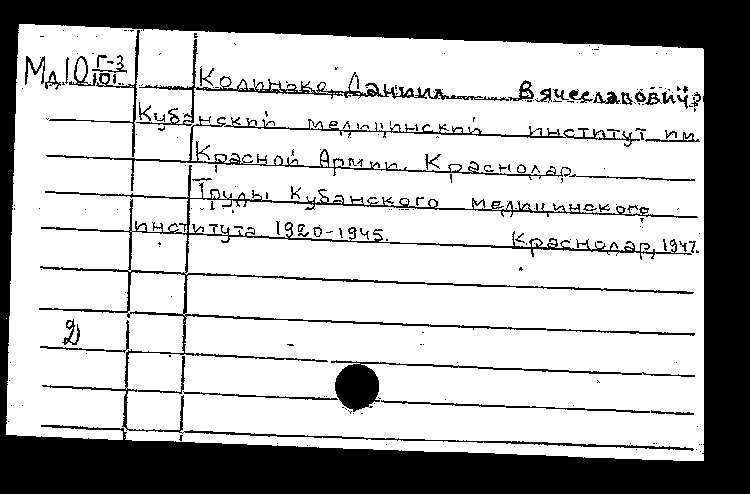 Мд10 Г-3/101
Колинько, Даниил Вячеславович,
Кубанский медицинский институт им.
Красной Армии. Краснодар.
Труды Кубанского медицинского
института 1920-1945. Краснодар, 1947.
2)